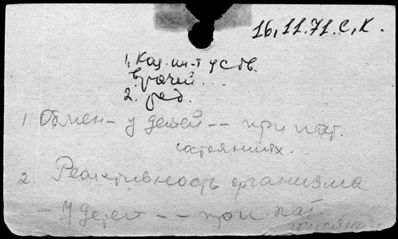 16.11.71. С.К.
1. Каз. ин-т усов.
врачей...
2. ред.
1. Обмен - у детей -- при пат.
состояниях.
2. Реактивность организма
- у детей -- при пат.
состояниях